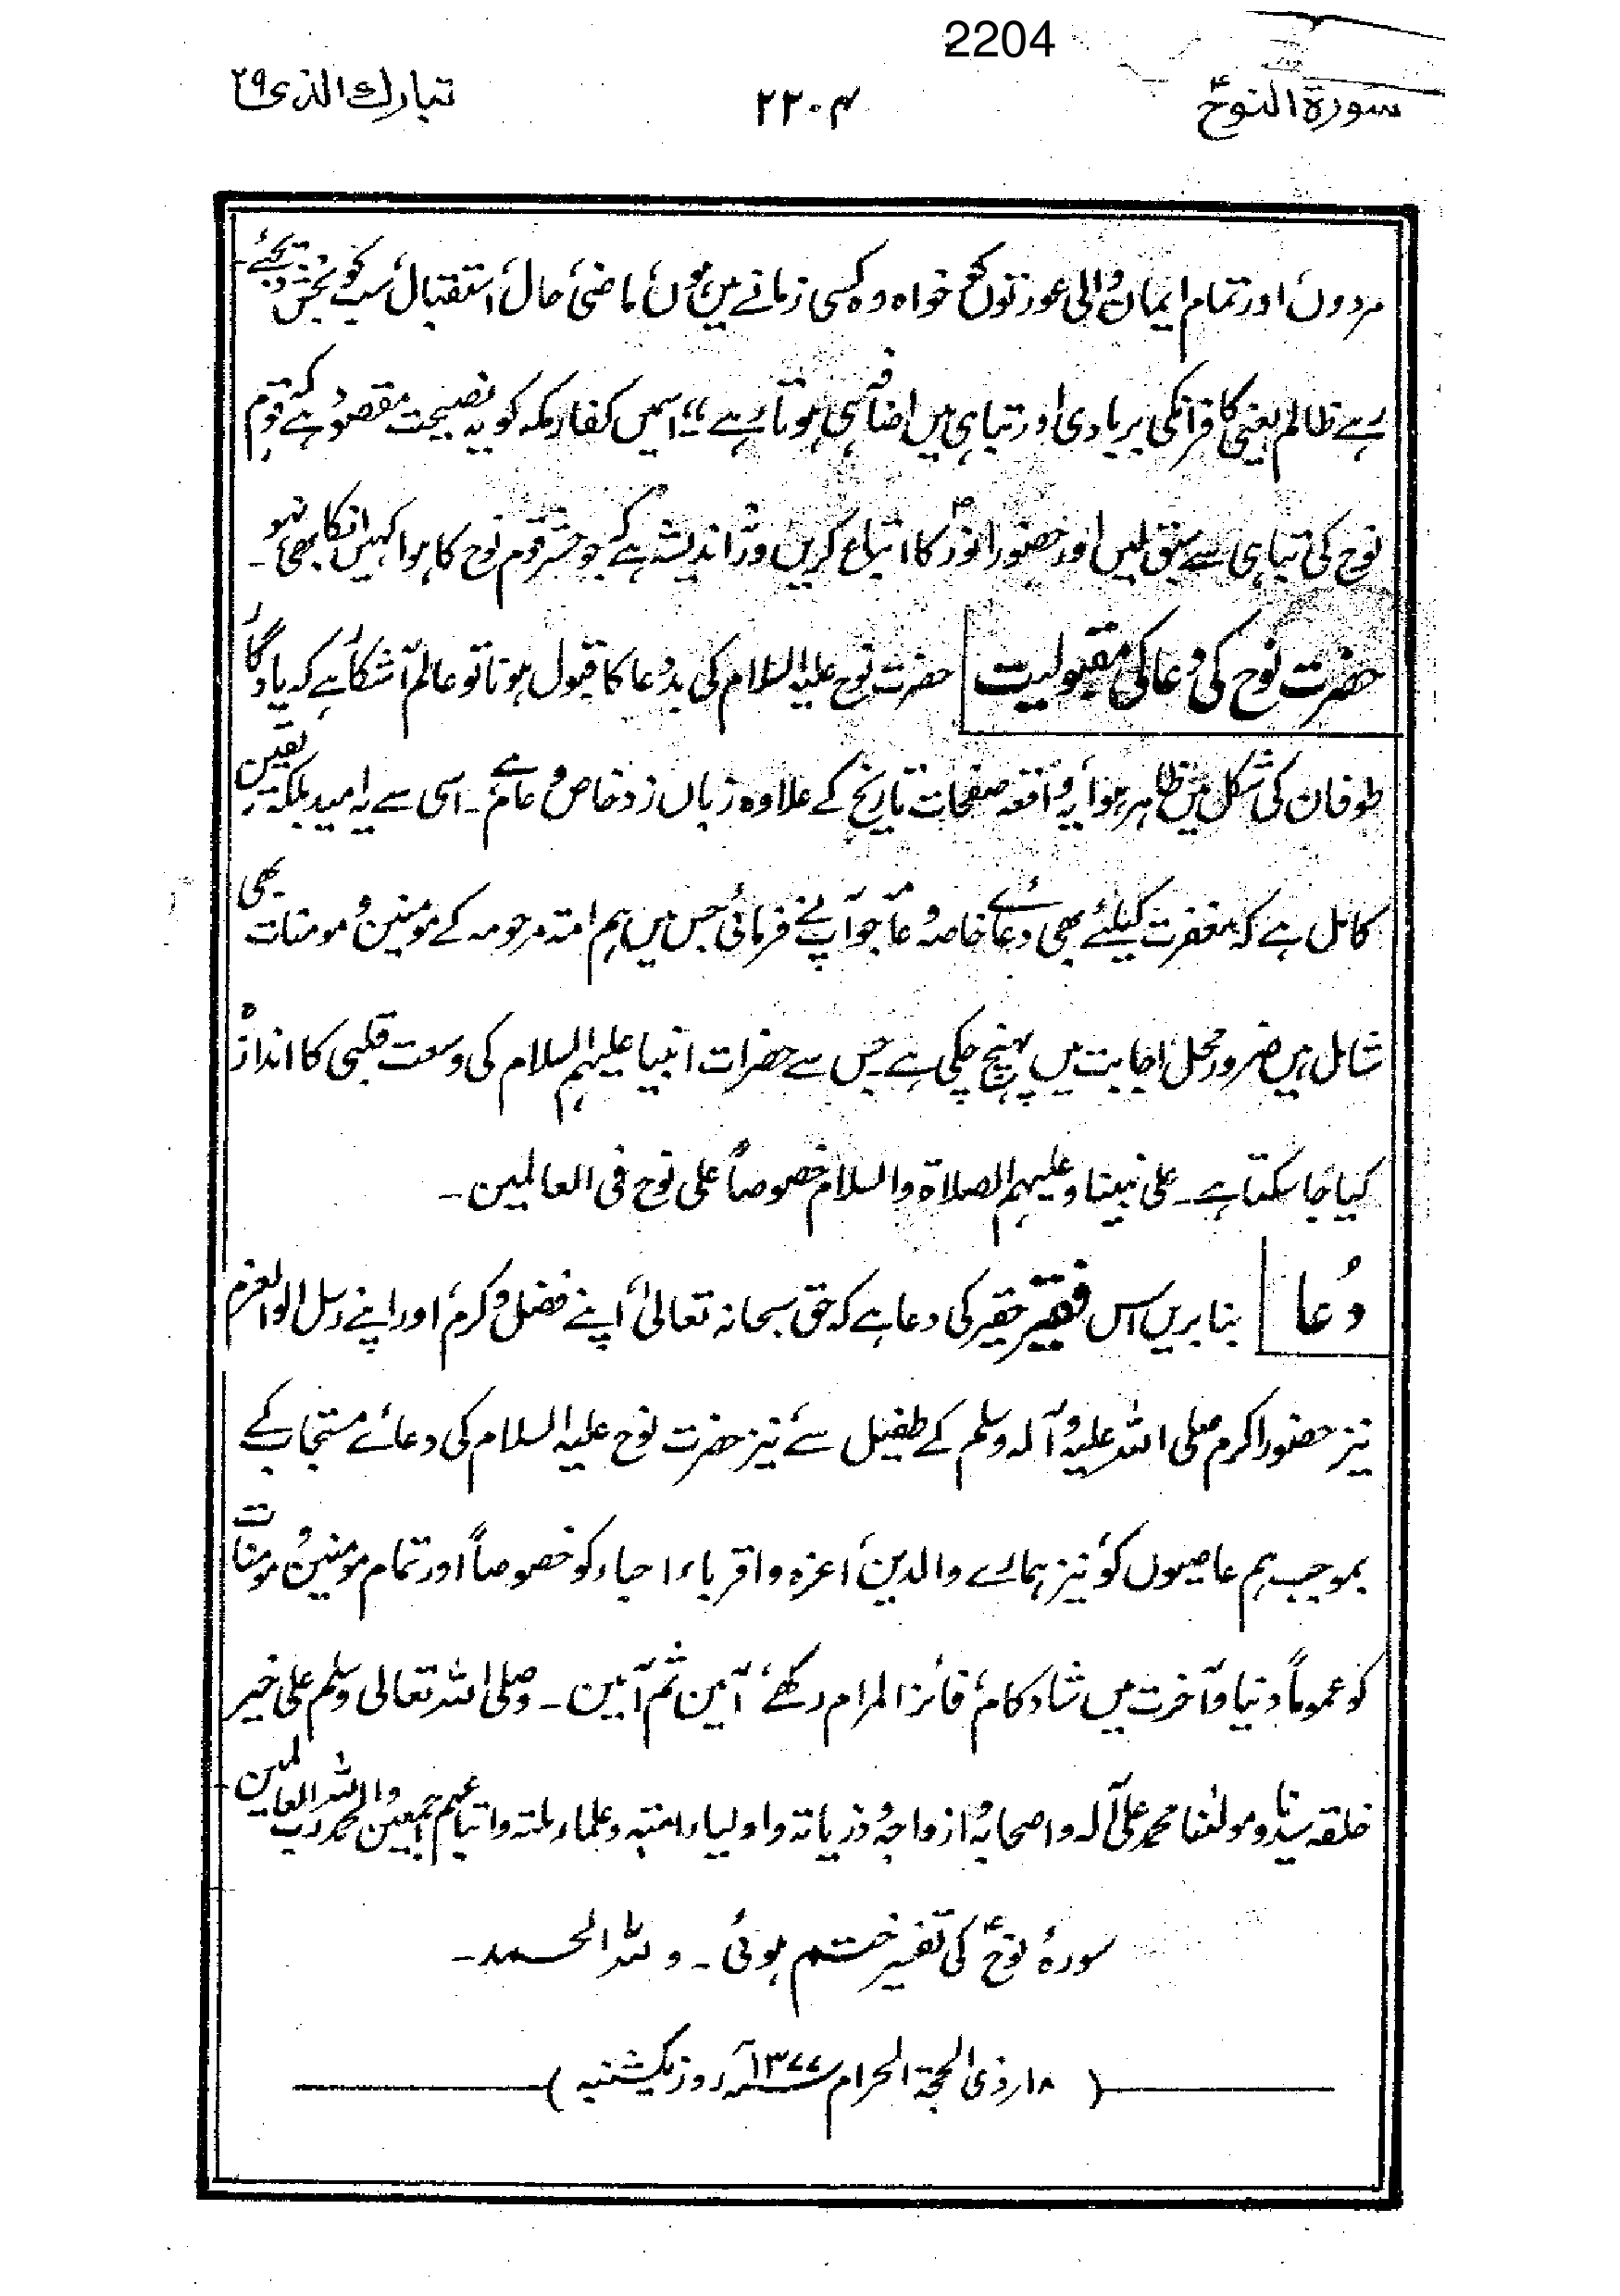 2204
سورۃ النوحؑ ۲۲۰۴ تبارک الذی ۲۹
مردوں، اور تمام ایمان والی عورتوں کو خواہ وہ کسی زمانے میں ہوں، ماضی، حال، استقبال، سب کو بخش دیجئے۔
رہے ظالم یعنی کافر انکی بربادی اور تباہی میں اضافہ ہی ہوتا رہے“ اسمیں کفار مکہ کو یہ نصیحت مقصود ہے کہ قوم
نوح کی تباہی سے سبق لیں اور حضور انورؐ کا اتباع کریں ورنہ اندیشہ ہے کہ جو حشر قوم نوح کا ہوا کہیں انکا بھی نہو۔
حضرت نوح کی دعا کی مقبولیت حضرت نوح علیہ السلام کی بددعا کا قبول ہونا تو عالم آشکارا ہے کہ یادگار
طوفان کی شکل میں ظاہر ہوا، یہ واقعہ صفحات تاریخ کے علاوہ زباں زد خاص و عام ہے۔ اسی سے یہ امید بلکہ یقین
کامل ہے کہ مغفرت کیلئے بھی دعائے خاصہ و عامہ جو آپنے فرمائی جس میں ہم امتہ مرحومہ کے مومنین و مومنات بھی
شامل ہیں ضرور محل اجابت میں پہنچ چکی ہے جس سے حضرات انبیا علیہم السلام کی وسعت قلبی کا اندازہ
کیا جا سکتا ہے۔ علی نبینا و علیہم الصلاۃ والسلام خصوصاً علی نوح فی العالمین۔
دُعا بنا بریں اس فقیر حقیر کی دعا ہے کہ حق سبحانہ تعالیٰ، اپنے فضل و کرم، اور اپنے رسل اولوالعزم
نیز حضور اکرم صلی اللہ علیہ و آلہ وسلم کے طفیل سے، نیز حضرت نوح علیہ السلام کی دعائے مستجاب کے
بموجب ہم عاصیوں کو، نیز ہمارے والدین، اعزہ و اقرباء احباء کو خصوصاً اور تمام مومنین و مومنات
کو عموماً دنیا و آخرت میں شاد کام، فائز المرام رکھے، آمین ثم آمین۔ وصلی اللہ تعالی وسلم علی خیر
خلقہ سیدنا و مولٰنا محمد و علی آلہ و اصحابہ و ازواجہ و ذریاتہ و اولیاء امتہ و علماء ملتہ و اتباعہم اجمعین والحمد للہ رب العالمین
سورۂ نوحؑ کی تفسیر ختم ہوئی۔ و للہ الحمد۔
( ۱۸؍ ذی الحجۃ الحرام ۱۳۷۷ھ روز یکشنبہ )